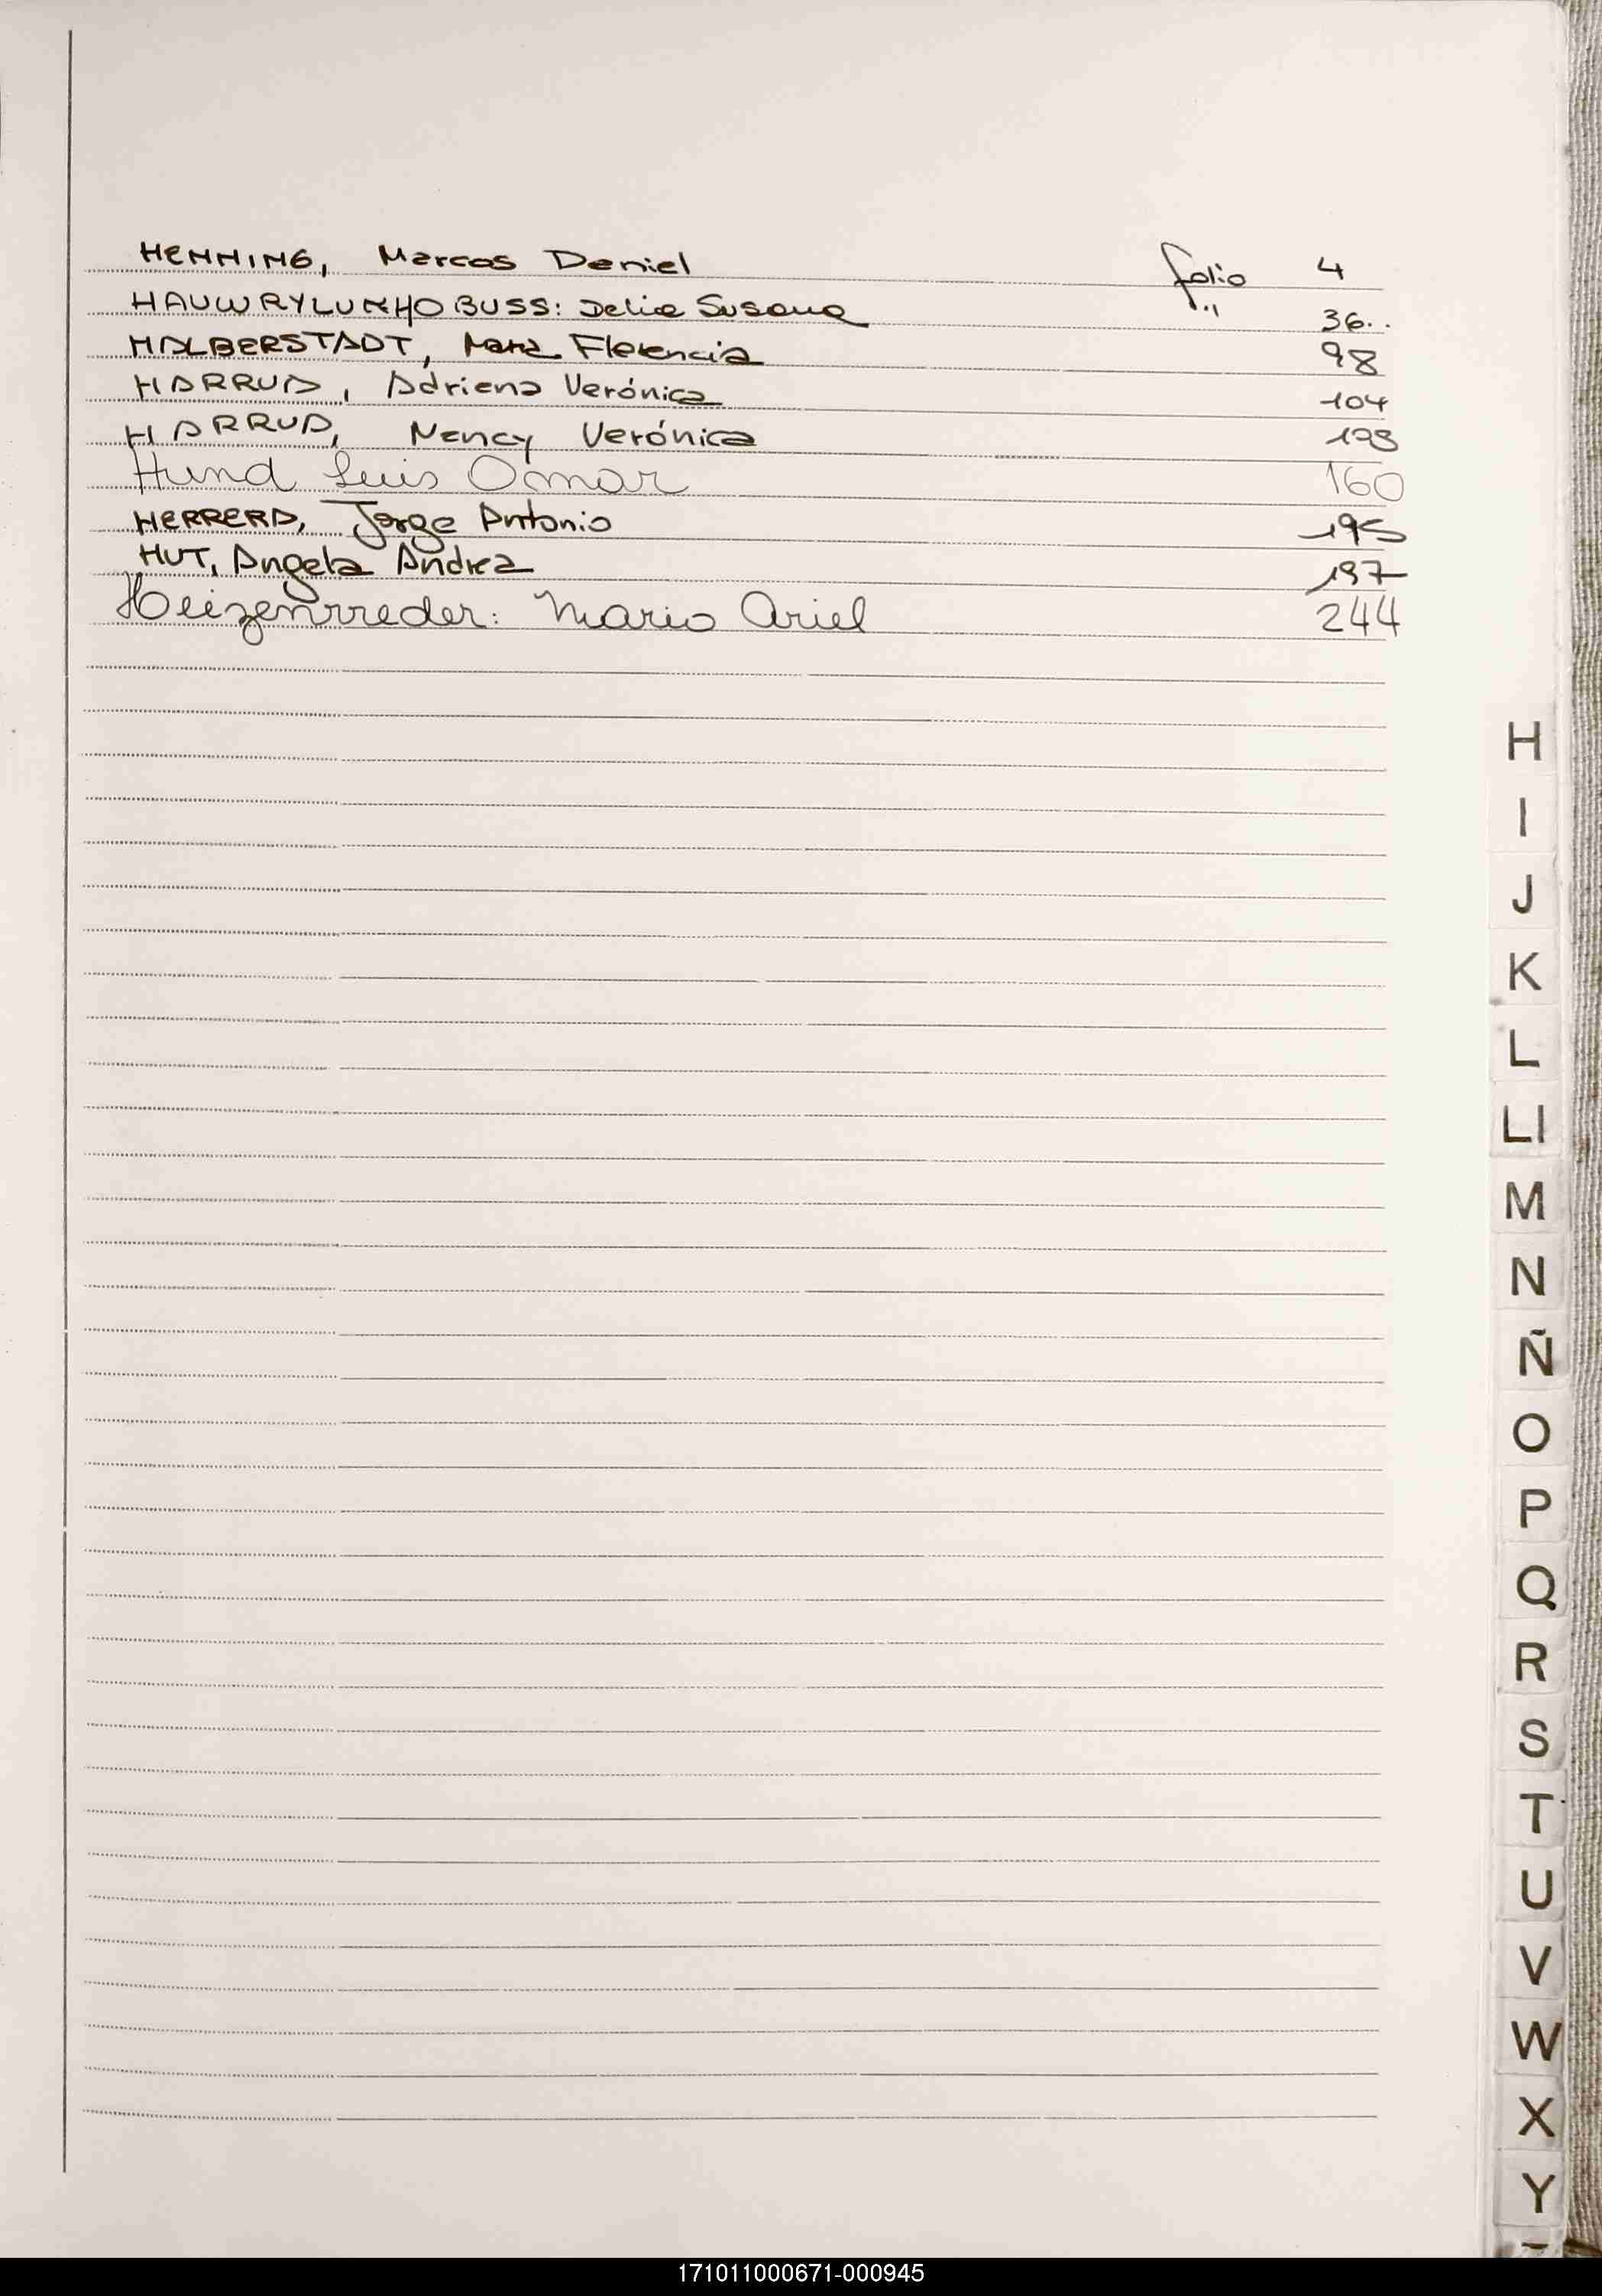 HENNING, Marcos Daniel folio 4
HAUWRYLUK HOBUSS: Delia Susana " 36
HALBERSTADT, María Florencia 98
HARRUA, Adriana Verónica 104
HARRUA, Nancy Verónica
Hund Luis Omar 160
HERRERA, Jorge Antonio 195
HUT, Angela Andrea 197
Heizenrreder: Mario Ariel 244
H
I
J
K
L
Ll
M
N
Ñ
O
P
Q
R
S
T
U
V
W
X
Y
171011000671-000945